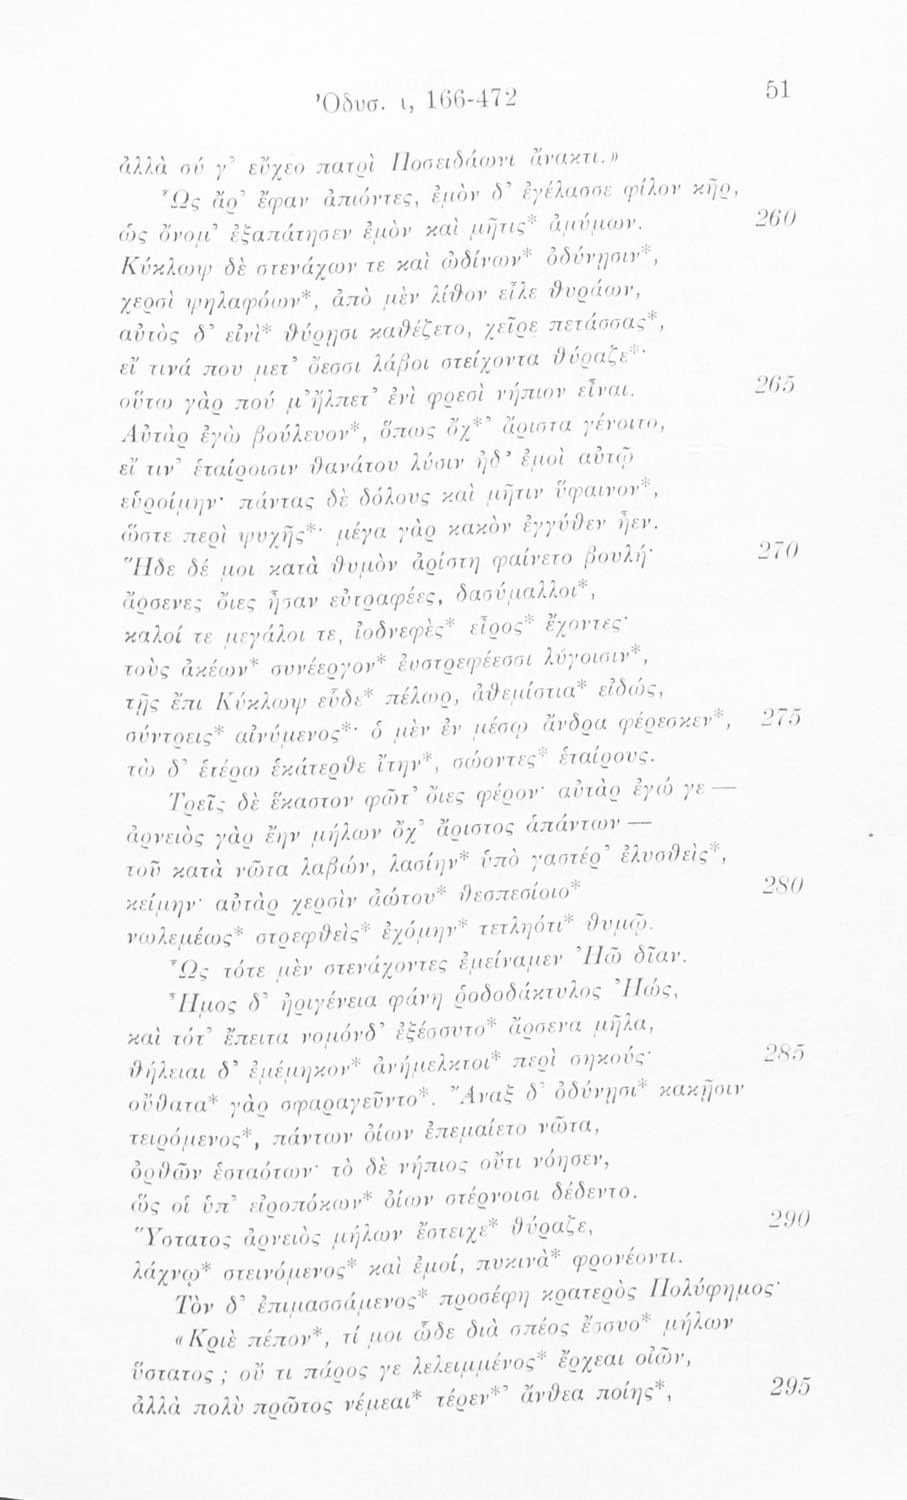 Ὀδυσ. ι, 166-472
51
ἀλλὰ σύ γ’ εὔχεο πατρὶ Ποσειδάωνι ἄνακτι.»
Ὣς ἄρ’ ἔφαν ἀπιόντες, ἐμὸν δ’ ἐγέλασσε φίλον κῆρ,
ὡς ὄνομ’ ἐξαπάτησεν ἐμὸν καὶ μῆτις* ἀμύμων. 260
Κύκλωψ δὲ στενάχων τε καὶ ὠδίνων* ὀδύνῃσιν*,
χερσὶ ψηλαφόων*, ἀπὸ μὲν λίθον εἷλε θυράων,
αὐτὸς δ’ εἰνὶ* θύρῃσι καθέζετο, χεῖρε πετάσσας*,
εἴ τινά που μετ’ ὄεσσι λάβοι στείχοντα θύραζε*·
οὕτω γὰρ πού μ’ἤλπετ’ ἐνὶ φρεσὶ νήπιον εἶναι. 265
Αὐτὰρ ἐγὼ βούλευον*, ὅπως ὄχ*’ ἄριστα γένοιτο,
εἴ τιν’ ἑταίροισιν θανάτου λύσιν ἠδ’ ἐμοὶ αὐτῷ
εὑροίμην· πάντας δὲ δόλους καὶ μῆτιν ὕφαινον*,
ὥστε περὶ ψυχῆς*· μέγα γὰρ κακὸν ἐγγύθεν ἦεν.
Ἥδε δέ μοι κατὰ θυμὸν ἀρίστη φαίνετο βουλή· 270
ἄρσενες ὄιες ἦσαν εὐτραφέες, δασύμαλλοι*,
καλοί τε μεγάλοι τε, ἰοδνεφὲς* εἶρος* ἔχοντες·
τοὺς ἀκέων* συνέεργον* ἐυστρεφέεσσι λύγοισιν*,
τῇς ἔπι Κύκλωψ εὗδε* πέλωρ, ἀθεμίστια* εἰδώς,
σύντρεις* αἰνύμενος*· ὁ μὲν ἐν μέσῳ ἄνδρα φέρεσκεν*, 275
τὼ δ’ ἑτέρω ἑκάτερθε ἴτην*, σώοντες* ἑταίρους.
Τρεῖς δὲ ἕκαστον φῶτ’ ὄιες φέρον· αὐτὰρ ἐγώ γε —
ἀρνειὸς γὰρ ἔην μήλων ὄχ’ ἄριστος ἁπάντων —
τοῦ κατὰ νῶτα λαβών, λασίην* ὑπὸ γαστέρ’ ἐλυσθεὶς*,
κείμην· αὐτὰρ χερσὶν ἀώτου* θεσπεσίοιο* 280
νωλεμέως* στρεφθεὶς* ἐχόμην* τετληότι* θυμῷ.
Ὣς τότε μὲν στενάχοντες ἐμείναμεν Ἠῶ δῖαν.
Ἦμος δ’ ἠριγένεια φάνη ῥοδοδάκτυλος Ἠώς,
καὶ τότ’ ἔπειτα νομόνδ’ ἐξέσσυτο* ἄρσενα μῆλα,
θήλειαι δ’ ἐμέμηκον* ἀνήμελκτοι* περὶ σηκούς· 285
οὔθατα* γὰρ σφαραγεῦντο*. Ἄναξ δ’ ὀδύνῃσι* κακῇσιν
τειρόμενος*, πάντων ὀίων ἐπεμαίετο νῶτα,
ὀρθῶν ἑσταότων· τὸ δὲ νήπιος οὔτι νόησεν,
ὥς οἱ ὑπ’ εἰροπόκων* ὀίων στέρνοισι δέδεντο.
Ὕστατος ἀρνειὸς μήλων ἔστειχε* θύραζε, 290
λάχνῳ* στεινόμενος* καὶ ἐμοί, πυκινὰ* φρονέοντι.
Τὸν δ’ ἐπιμασσάμενος* προσέφη κρατερὸς Πολύφημος·
«Κριὲ πέπον*, τί μοι ὧδε διὰ σπέος ἔσσυο* μήλων
ὕστατος ; οὔ τι πάρος γε λελειμμένος* ἔρχεαι οἰῶν,
ἀλλὰ πολὺ πρῶτος νέμεαι* τέρεν*’ ἄνθεα ποίης*, 295